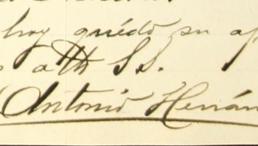 hoy quédo su af
s atto S.S.
Antonio Hernán